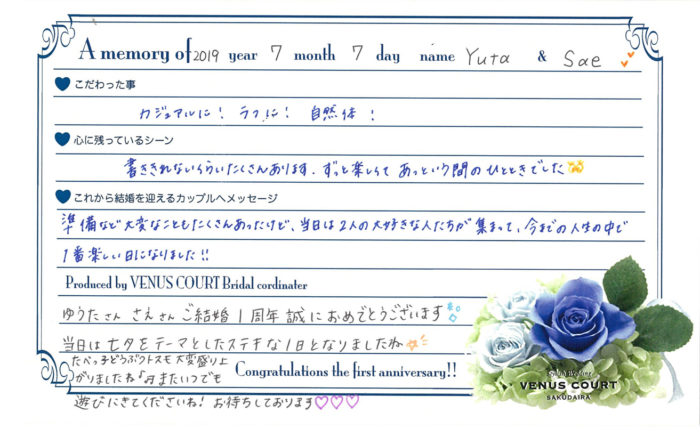 A memory of 2019 year 7 month 7 day name Yuta & Sae
こだわった事
カジュアルに! ラフに! 自然体!
心に残っているシーン
書ききれないくらいたくさんあります. ずっと楽しくて あっという間の ひとときでした
これから結婚を迎えるカップルへメッセージ
準備など大変なこともたくさんあったけど、当日は2人の大好きな人たちが 集まって、今までの人生の中で
1番楽しい日になりました!!
Produced by VENUS COURT Bridal cordinater
ゆうたさん さえさん ご結婚1周年 誠におめでとうございます
当日は七夕をテーマとしたステキな1日となりましたね
たべっ子どうぶつトスも大変盛り上
がりましたね♪♬またいつでも
Congratulations the first anniversary!!
遊びにきてくださいね! お待ちしております♡♡♡
VENUS COURT
SAKUDAIRA